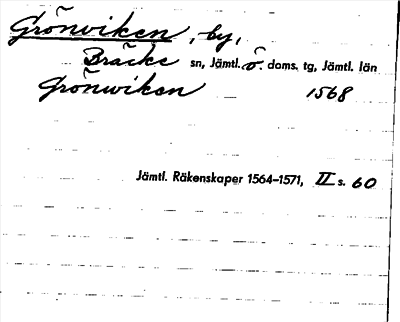 Grönviken, by,
Bräcke sn, Jämtl. ö. doms. tg, Jämtl. län
Grönwiken 1568
Jämtl. Räkenskaper 1564-1571, II s. 60